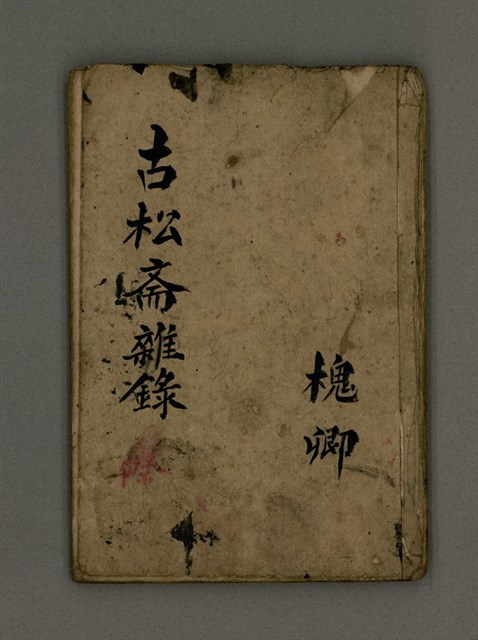 槐卿
古松斋雜錄